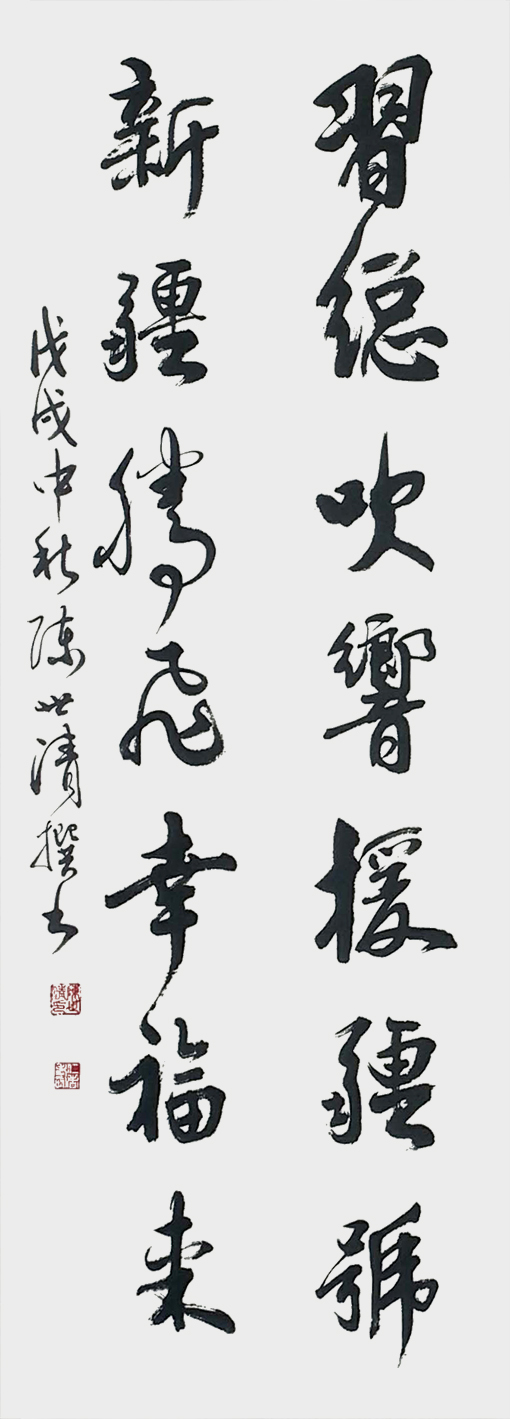 習總吹響援疆號
新疆騰飛幸福來
戊戌中秋陈世清撰书